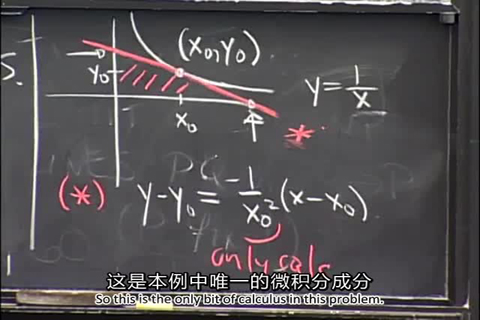 S.
(x₀,y₀)
y₀
y = 1/x
x₀
*
(*) y-y₀ = -1/x₀² (x-x₀)
only calc
这是本例中唯一的微积分成分
So this is the only bit of calculus in this problem.